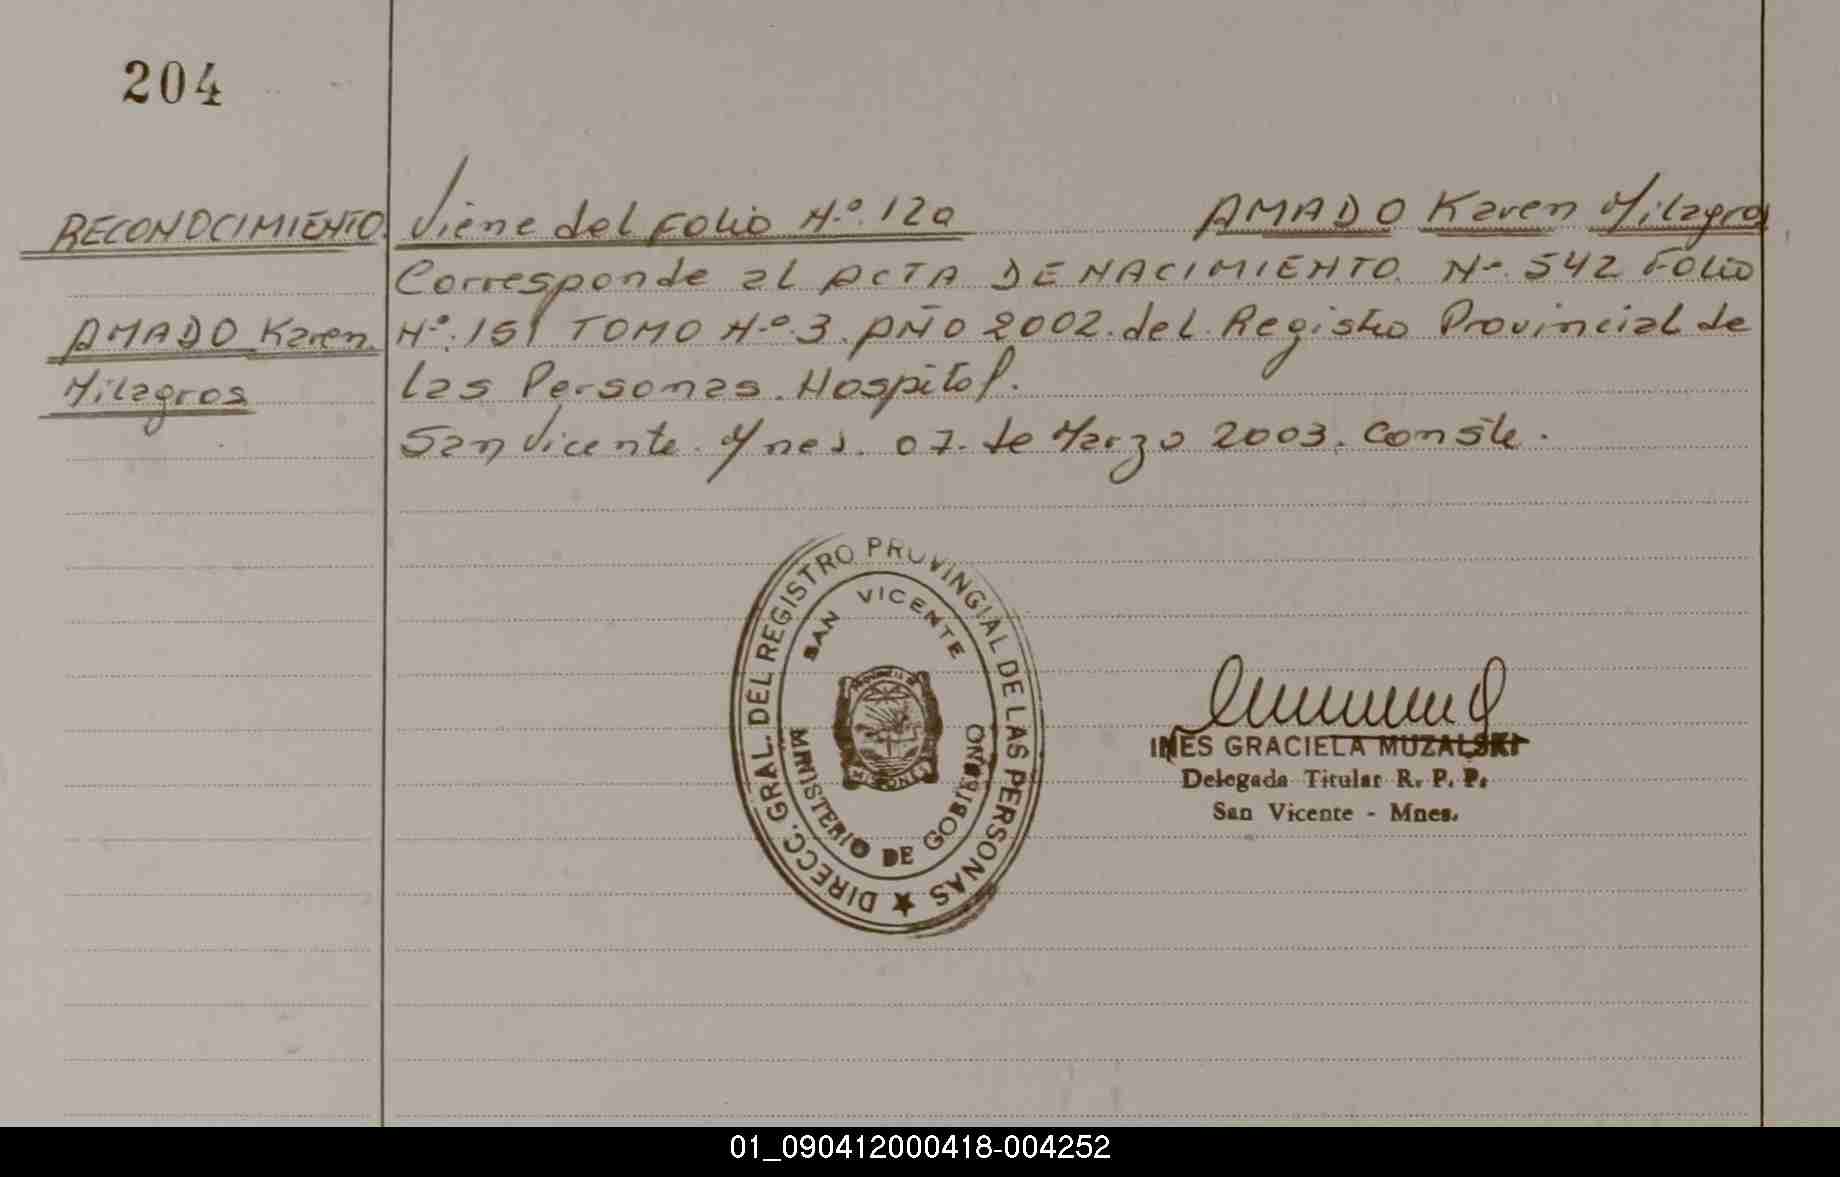 204
RECONOCIMIENTO.
AMADO Karen
Milagros
Viene del Folio N.º 120 AMADO Karen Milagros
Corresponde al ACTA DE NACIMIENTO. Nº. 542 Folio
Nº. 151 TOMO N.º 3. AÑO 2002. del Registro Provincial de
las Personas. Hospital.
San Vicente. Mnes. 07. de Marzo 2003. Conste.
DIRECC. GRAL. DEL REGISTRO PROVINCIAL DE LAS PERSONAS
SAN VICENTE
MINISTERIO DE GOBIERNO
MISIONES
INES GRACIELA MUZALSKI
Delegada Titular R. P. P.
San Vicente - Mnes.
01_090412000418-004252